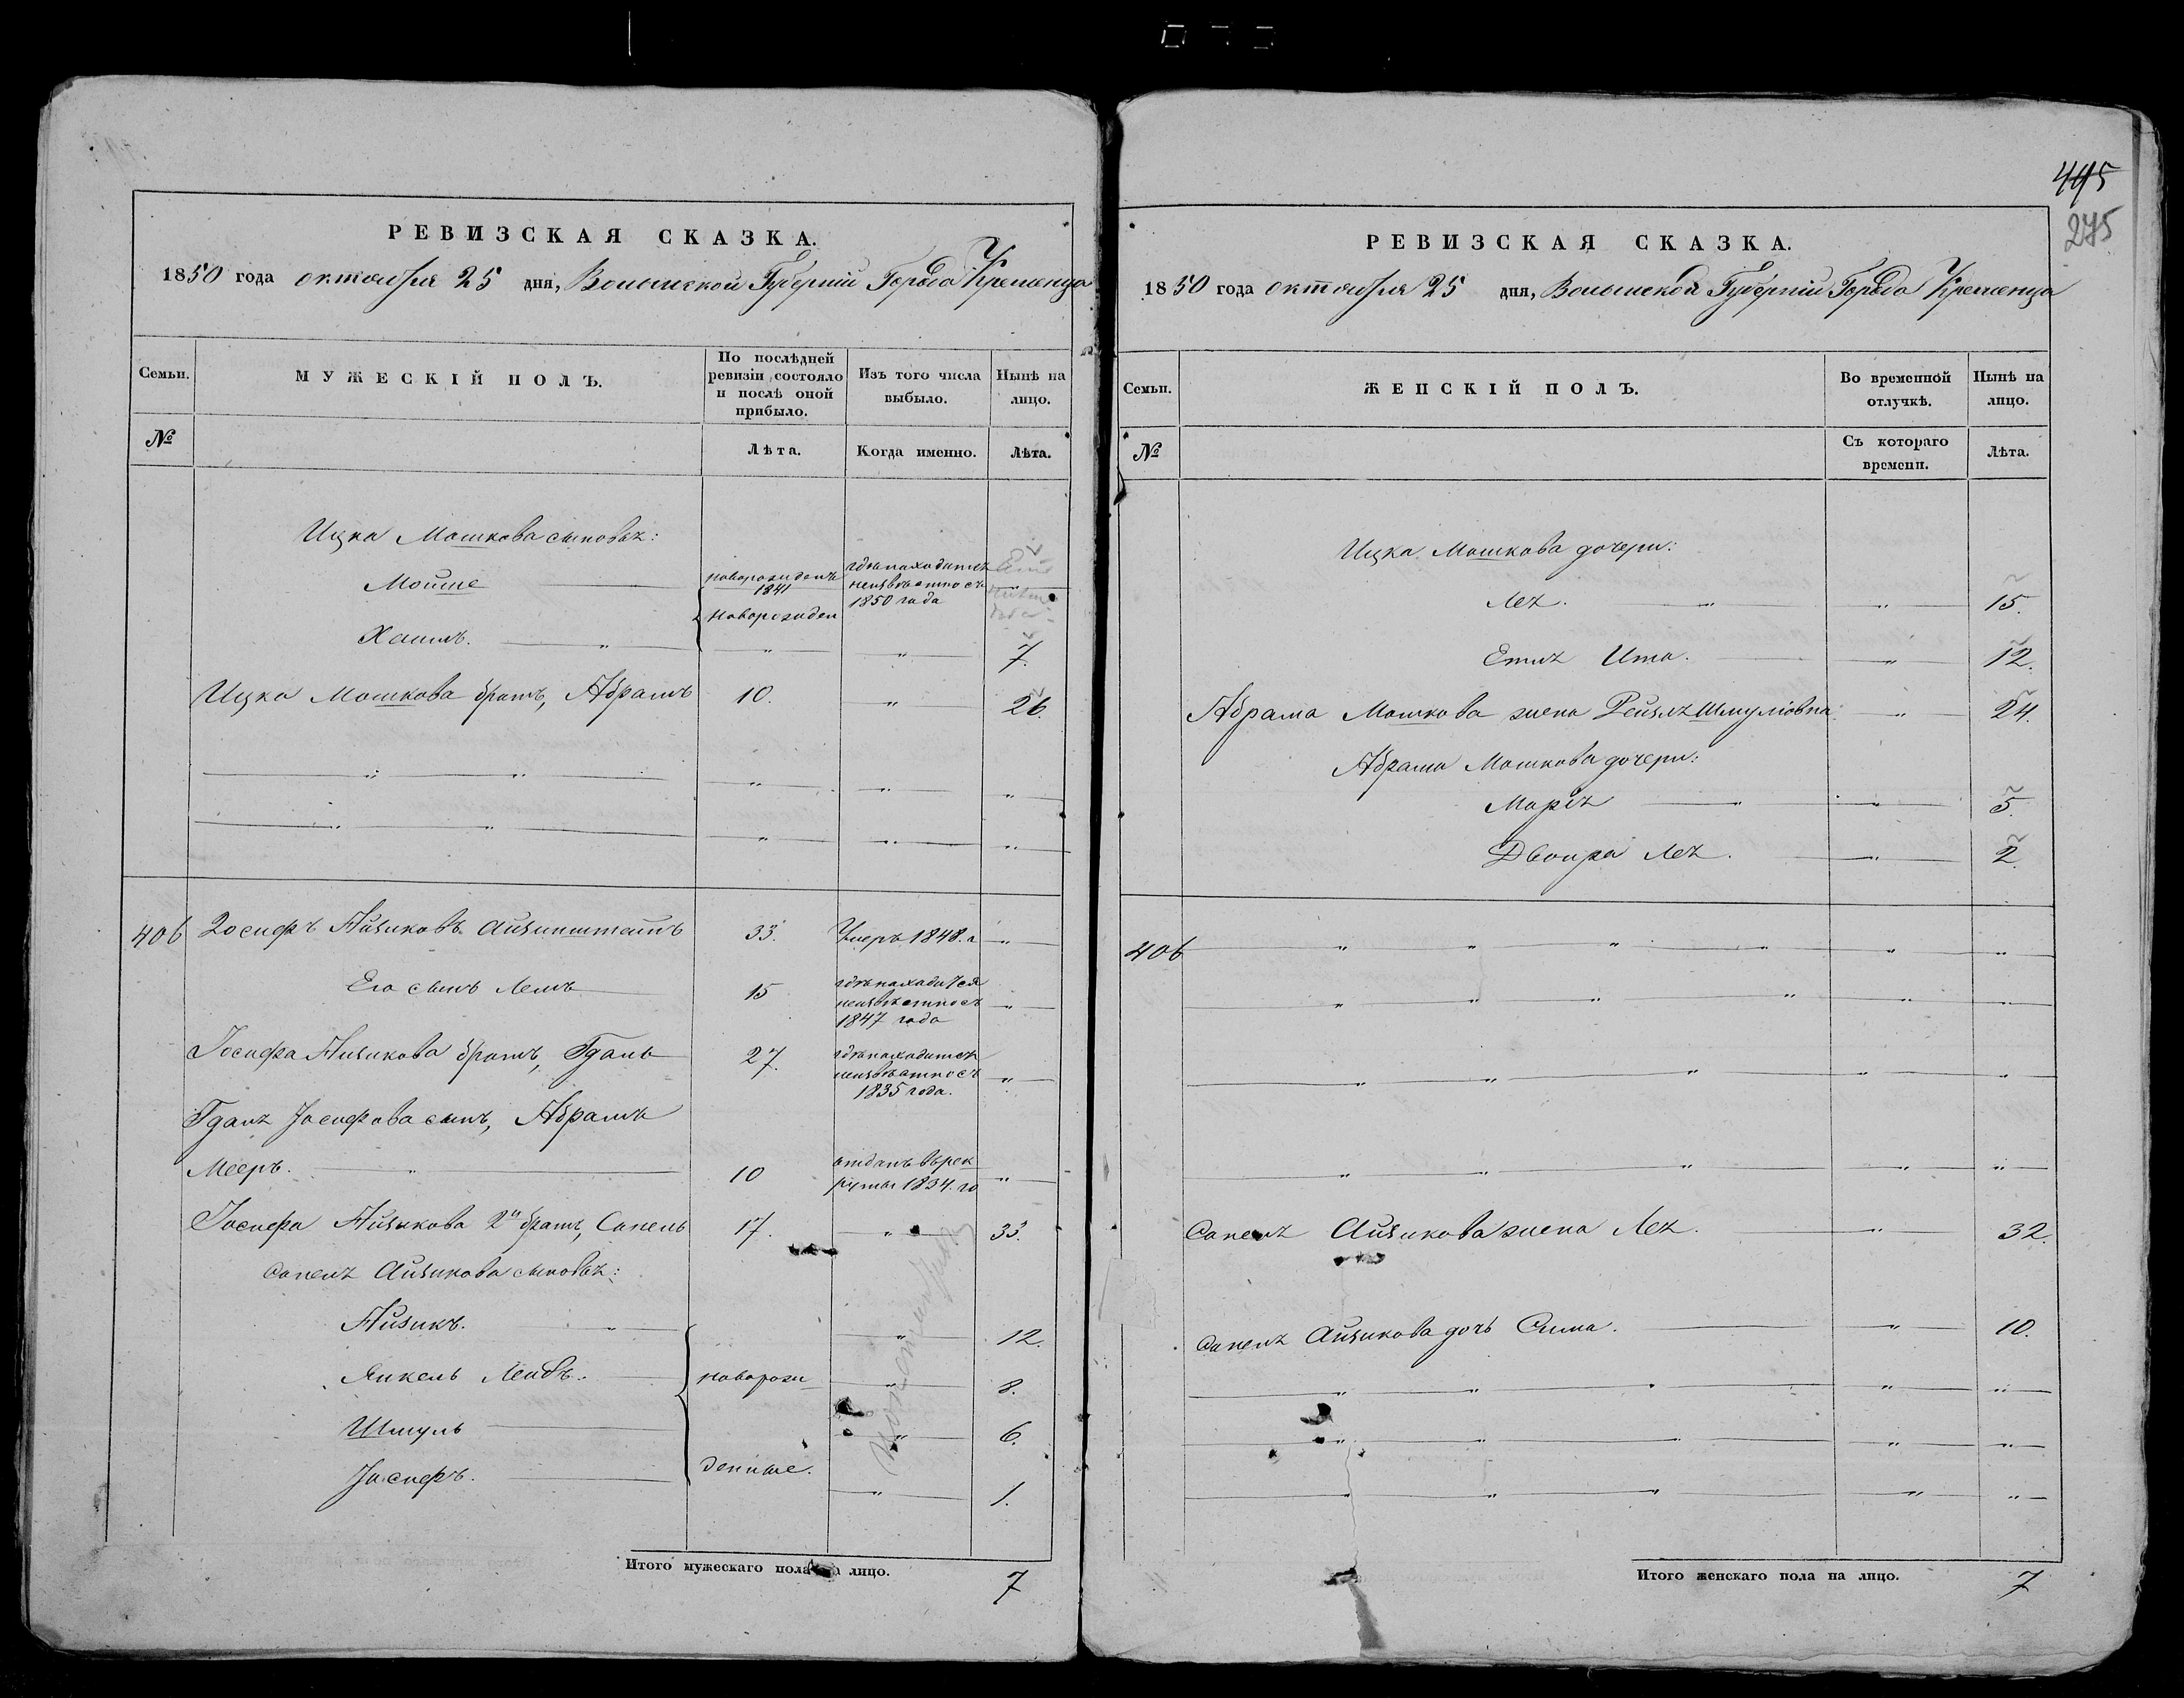 РЕВИЗСКАЯ СКАЗКА.
1850 года октября 25 дня, Волынской Губерніи Города Кременца
Семьи.
МУЖЕСКІЙ ПОЛЪ.
По послѣдней ревизіи состояло и послѣ оной прибыло.
Изъ того числа выбыло.
Нынѣ на лицо.
№
Лѣта.
Когда именно.
Лѣта.
Ицка Мошкова сыновья:
Мойше новорожденъ 1841 гдѣ находится неизвѣстно съ 1850 года
Хаимъ. новорожден " 7
Ицка Мошкова братъ, Абрамъ 10. " 26.
406 Іосифъ Айзиковъ Айзинштейнъ 33. Умеръ 1848. г "
Его сынъ Лейб 15 гдѣ находится неизвѣстно съ 1847 года "
Іосифа Айзикова братъ, Гдаль 27. гдѣ находится неизвѣстно съ 1835 года. "
Гдаля Іосифова сынъ, Абрамъ
Мееръ. 10 отданъ въ рек руты 1834. го "
Іосифа Айзикова 2й братъ, Санель 17. " 33.
Санеля Айзикова сыновья:
Айзикъ. " 12.
Янкель Лейбъ. новорож " 8.
Шмуль " 6.
Іосифъ. денные. " 1.
Итого мужескаго пола на лицо. 7
495
275
РЕВИЗСКАЯ СКАЗКА.
1850 года октября 25 дня, Волынской Губерніи Города Кременца
Семьи.
ЖЕНСКІЙ ПОЛЪ.
Во временной отлучкѣ.
Нынѣ на лицо.
№
Съ котораго времени.
Лѣта.
Ицка Мошкова дочери:
Лея. " " 15.
Етля Ита. " 12.
Абрама Мошкова жена Рейзля Шмуліовна " 24.
Абрама Мошкова дочери:
Марія " " 5.
Двойра Лея. " 2.
406 " " " " " "
Санеля Айзикова жена Лея. " 32.
Санеля Айзикова дочь Сима. " 10.
Итого женскаго пола на лицо. 7